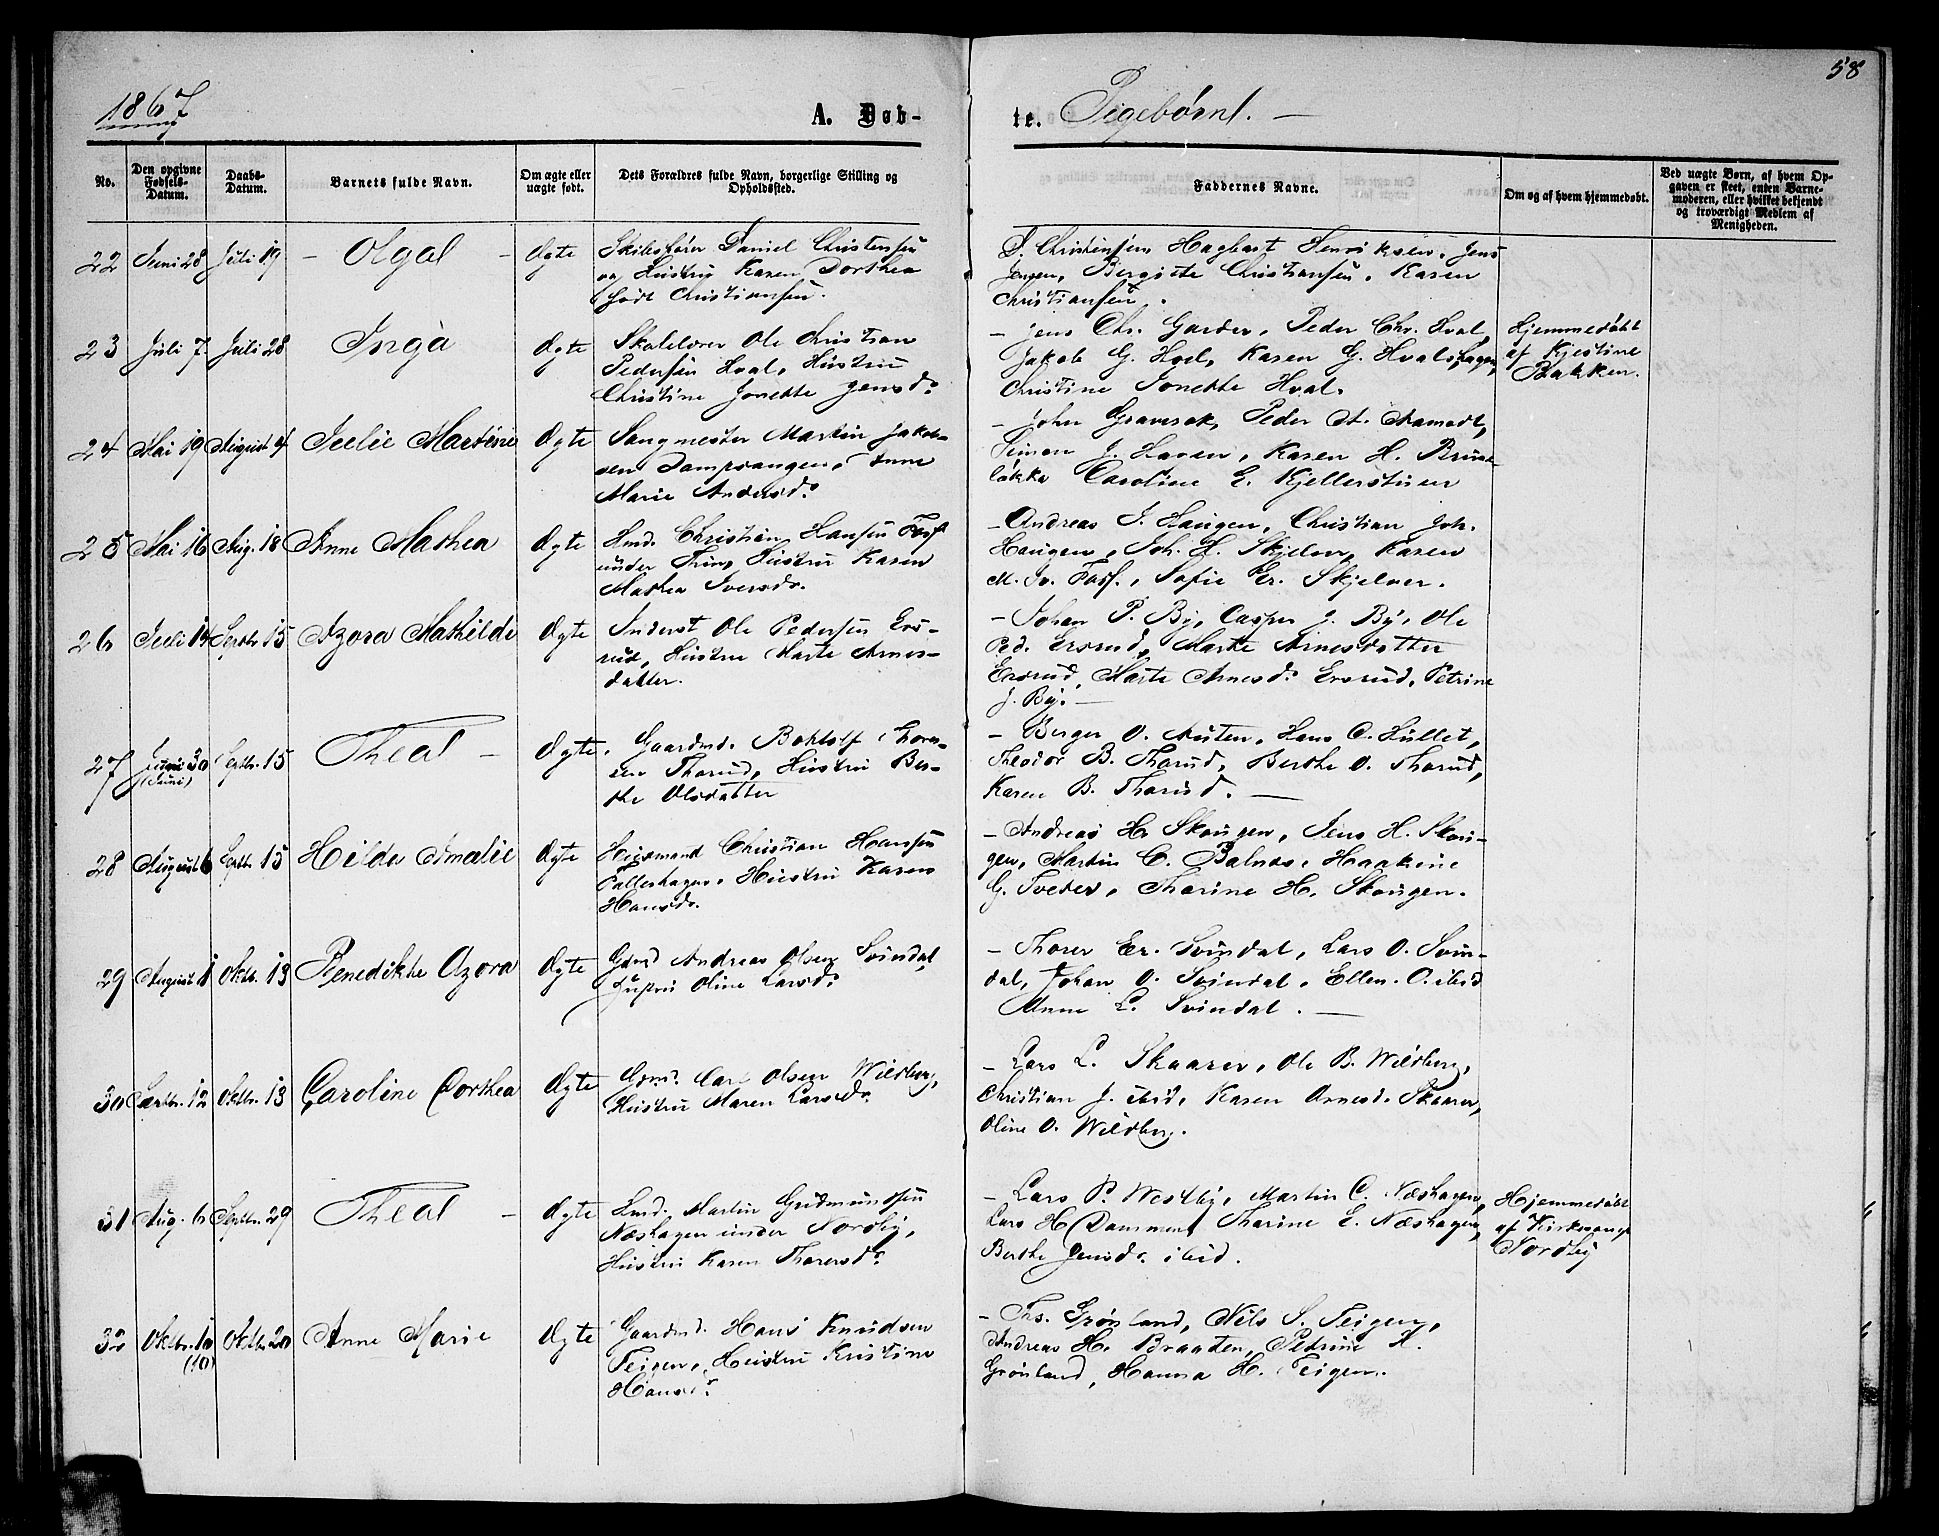 1867
A. Døb-
te. Pigebørn. —
58
No.
Den opgivne Fødsels-Datum.
Daabs-Datum.
Barnets fulde Navn.
Om ægte eller uægte født.
Dets Forældres fulde Navn, borgerlige Stilling og Opholdssted.
Faddernes Navne.
Om og af hvem hjemmedøbt.
Ved uægte Børn, af hvem Opgaven er skeet, enten Barnemoderen, eller hvilket bekjendt og troværdigt Medlem af Menigheden.
22 Juni 28 Juli 19 – Olga – Ægte
Skibsfører Daniel Christensen
og Hustru Karen Dorthea
født Christiansen.
D. Christensen Hagbart Henriksen, Jens
Jensen, Bergitte Christiansen, Karen
Christiansen.
23 Juli 7. Juli 28 Inga Ægte
Skolelærer Ole Christian
Pedersen Hval, Hustru
Christine Jonette Jensd.
– Jens Chr. Garder, Peder Chr. Hval,
Jakob G. Hvel, Karen G. Hvalshagen,
Christine Jonette Hval.
Hjemmedøbt
af Kjestine
Bakken.
24 Mai 19 August 4 Julie Martine Ægte
Sangmester Martin Jakob-
sen Dampsaugen, Anne
Marie Andersd.
– John Gravsek, Peder A. Aamodt,
Simon J. Haven, Karen H. Brune-
løkke Caroline E. Kjellerstuen
25 Mai 16 Aug. 18 Anne Mathea Ægte
Hmd. Christian Hansen Foss
under Thim, Hustru Karen
Mathea Iversd.
– Andreas J. Haugen, Christian Joh.
Haugen, Joh. H. Skjelver, Karen
M. Iv. Foss., Sofie Er. Skjelver.
26 Juli 14 Septbr 15 Azora Mathilde Ægte
Inderst Ole Pedersen Ers-
rud, Hustru Marte Arnes-
datter.
– Johan P. By, Casper J. By, Ole
Ped. Ersrud, Marte Arnesdatter
Ersrud, Marte Arnesd. Ersrud, Petrine
J. By. —
27 30 (Juni) Septbr. 15 Thea – Ægte.
Gaardmd. Bottolf Thore-
sen Thorud, Hustru Ber-
the Olsdatter
– Berger O. Austen, Hans O. Hullet,
Theodor B. Thorud, Berthe O. Thorud,
Karen B. Thorud. —
28 August 6 Septbr. 15 Hilda Amalie Ægte
Huusmand Christian Hansen
Pallerhagen, Hustru Karen
Hansd.
– Andreas H. Skougen, Jens H. Skou-
gen, Martin C. Balnes, Haakine
G. Tveder, Thorine H. Skougen.
29 August 1 Oktb. 13 Benedikte Azora Ægte
Gdmd Andreas Olsen Svindal,
Hustru Oline Larsd.
– Thorer Er. Svindal, Lars O. Svin-
dal, Johan O. Svindal, Ellen O. ibid
Anne L. Svindal. —
30 Septbr. 12 Oktbr. 13 Caroline Dorthea Ægte
Gdmd. Carl Olsen Wildberg,
Hustru Maren Larsd.
– Lars L. Skaarer, Ole B. Wildberg,
Christian J. ibid, Karen Arnesd. Skaarer,
Oline O. Wildberg.
31 Aug. 6 Septbr. 29 Thea – Ægte
Hmd. Martin Gudmundsen
Næshagen under Nordby,
Hustru Karen Thorersd.
– Lars P. Westby, Martin C. Næshagen,
Lars H. Dammen, Thorine E. Næshagen,
Berthe Jensd. ibid.
Hjemmedøbt
af Kirkesang.
Nordby
32 Oktbr. 10 (10) Oktbr. 20 Anne Marie Ægte
Gaardmd. Hans Knudsen
Teigen, Hustru Kristine
Hansd.
– Ths. Grønland, Nils S. Teigen,
Andreas H. Braaten, Petrine A.
Grønland, Hanna H. Teigen.